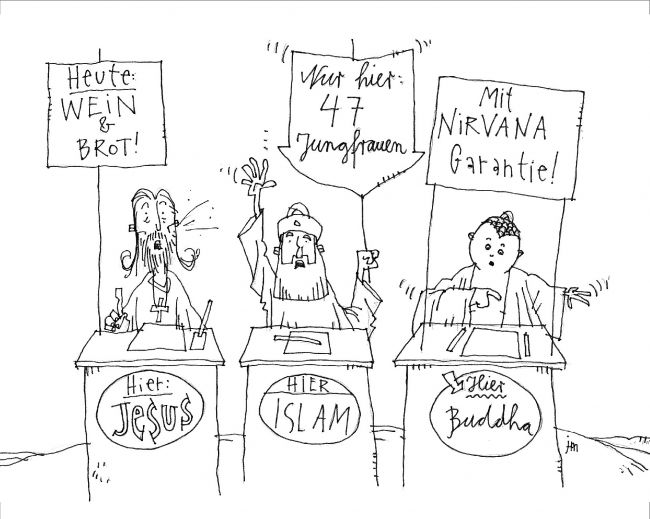 Heute:
WEIN
&
BROT!
Nur hier:
47
Jungfrauen
Mit
NIRVANA
Garantie!
Hier:
Je$u$
HIER
ISLAM
Hier
Buddha
jm